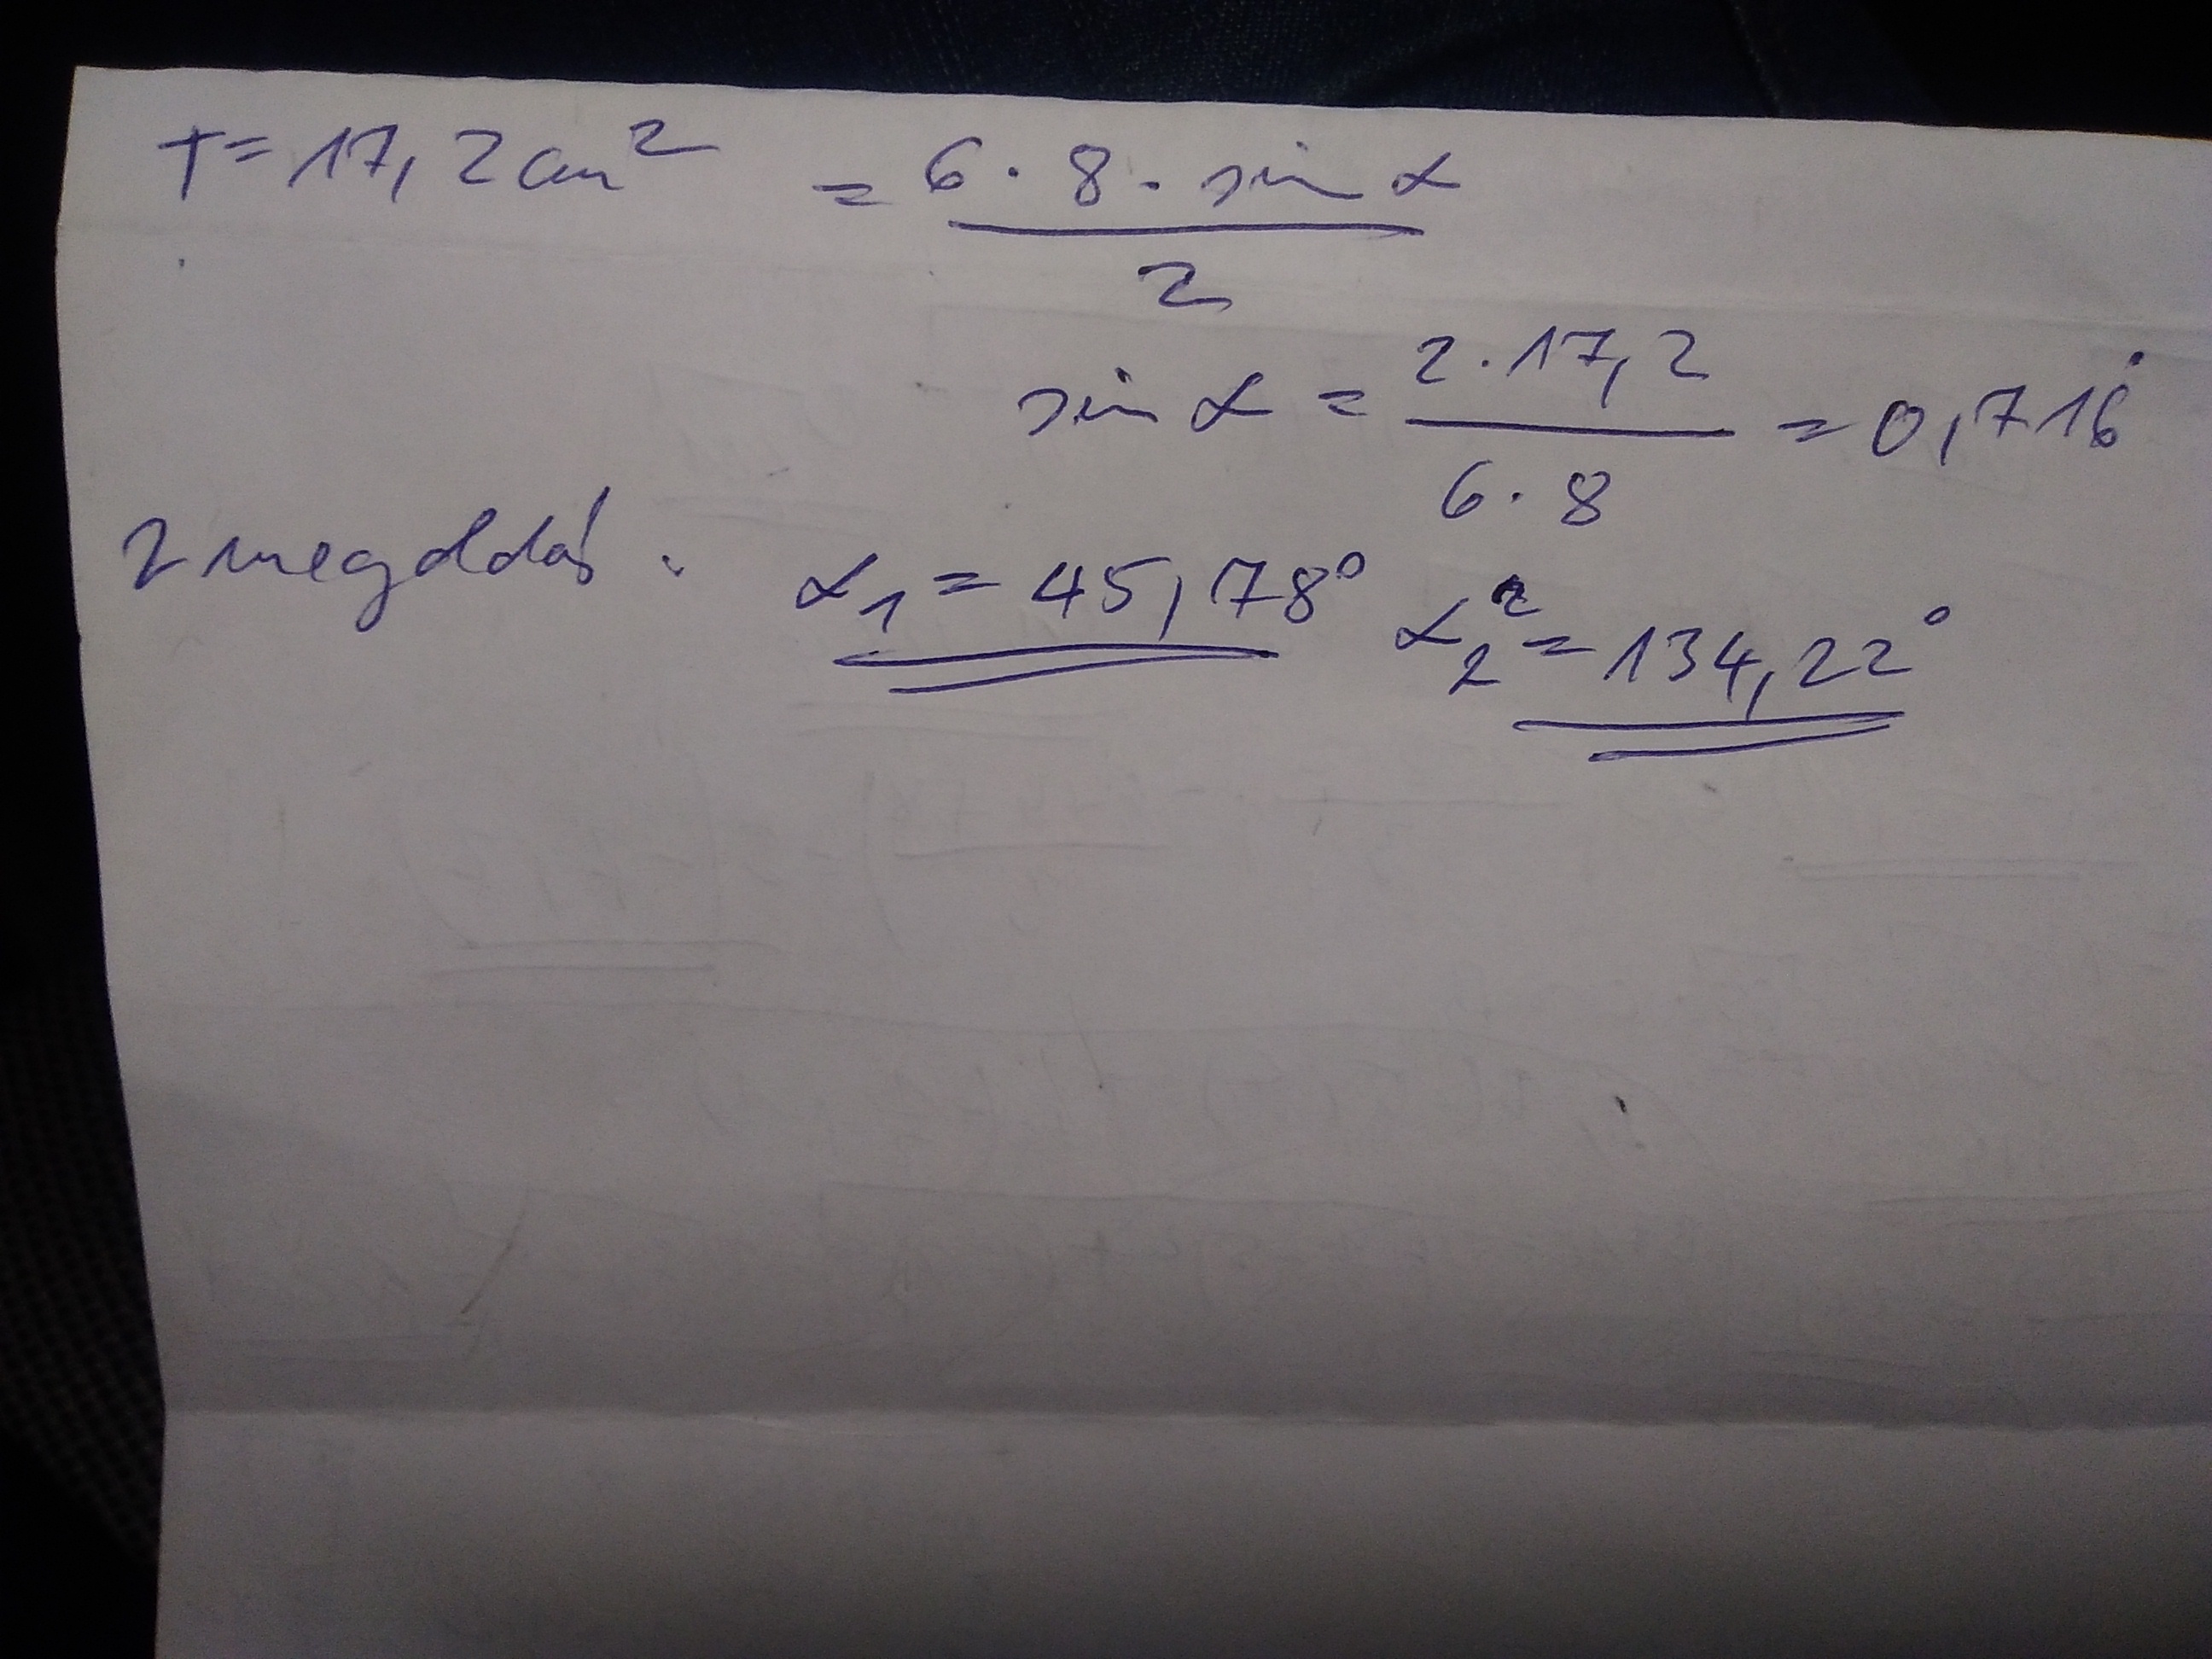 T = 17,2 cm² = 6 · 8 · sin α / 2
sin α = 2 · 17,2 / 6 · 8 = 0,716̇
2 megoldás: α₁ = 45,78° α₂ = 134,22°